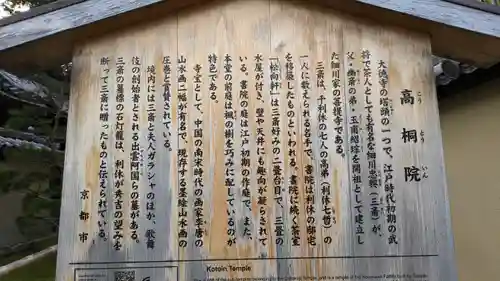 高桐院
こうとういん
大徳寺の塔頭の一つで、江戸時代初期の武
将で茶人としても有名な細川忠興（三斎）が、
父・幽斎の弟・玉甫紹琮を開祖として建立し
た細川家の菩提寺である。
三斎は、千利休の七人の高弟（利休七哲）の
一人に数えられる名手で、書院は利休の邸宅
を移築したものといわれる。書院に続く茶室
「松向軒」は三斎好みの二畳台目で、三畳の
水屋が付き、壁や天井にも趣向が凝らされて
いる。書院の庭は江戸初期の作庭で、また、
本堂の前庭は楓の樹を巧みに配しているのが
特色である。
寺宝として、中国の南宋時代の画家李唐の
山水画二幅が有名で、現存する墨絵山水画の
圧巻と賞賛されている。
境内には三斎と夫人ガラシャのほか、歌舞
伎の創始者とされる出雲阿国らの墓がある。
三斎の墓標の石灯籠は、利休が秀吉の望みを
断って三斎に贈ったものと伝えられている。
京都市
Kotoin Temple